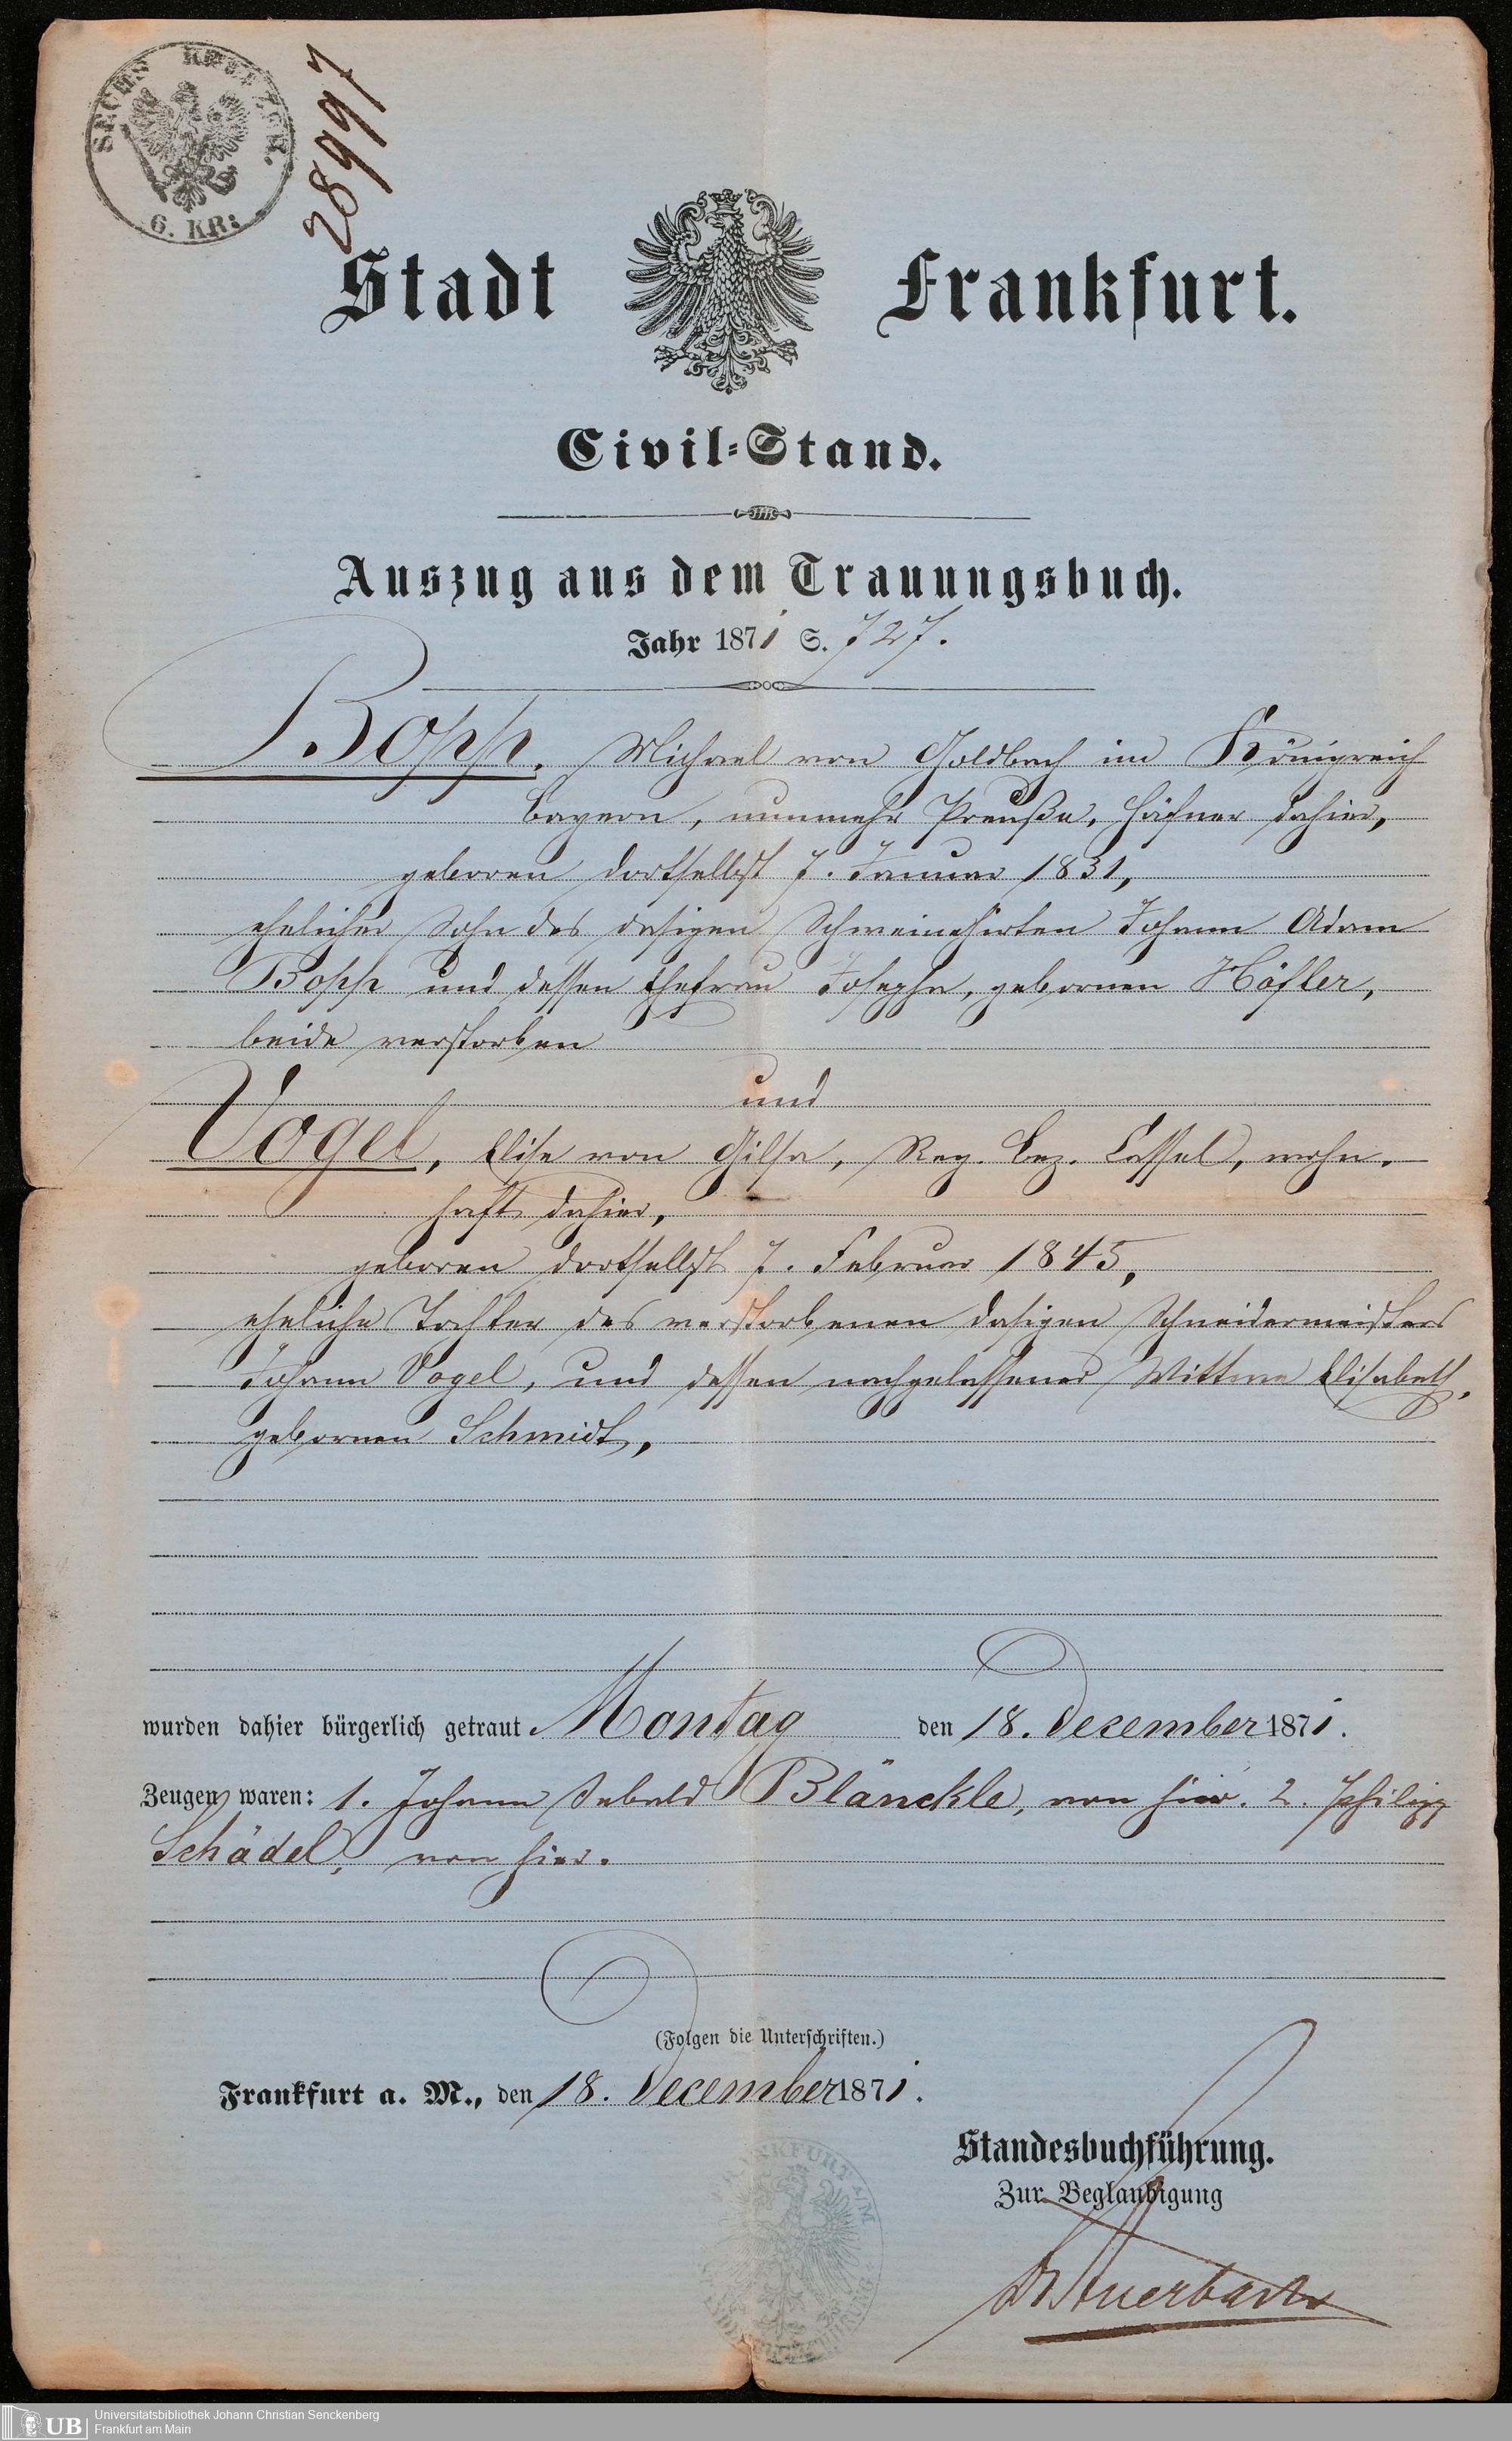 SECHS KREUZER.
6. KR:
28997
Stadt Frankfurt.
Civil-Stand.
Auszug aus dem Trauungsbuch.
Jahr 1871 S. 727.
Bopp, Michael von Goldbach im Königreich
Bayern, nunmehr Preuße, Häfner dahier,
geboren dortselbst 7. Januar 1831,
ehelicher Sohn des dasigen Schweinehirten Johann Adam
Bopp und dessen Ehefrau Josepha, gebornen Höfler,
beide verstorben
und
Vogel, Elise von Gilsa, Reg. Bez. Cassel, wohn-
haft dahier,
geboren dortselbst 7. Februar 1845,
eheliche Tochter des verstorbenen dasigen Schneidermeisters
Johann Vogel, und dessen nachgelassener Wittwe Elisabeth,
gebornen Schmidt,
wurden dahier bürgerlich getraut Montag den 18. December 1871.
Zeugen waren: 1. Johann Sebald Blänckle, von hier. 2. Philipp
Schädel, von hier.
(Folgen die Unterschriften.)
Frankfurt a. M., den 18. December 1871.
Standesbuchführung.
Zur Beglaubigung
Dr Auerbach
FRANKFURT A/M
UB
Universitätsbibliothek Johann Christian Senckenberg
Frankfurt am Main